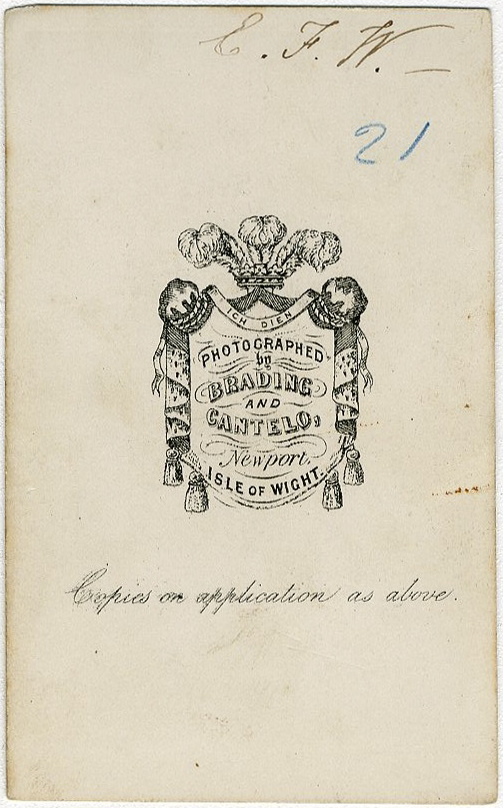 E. F. W. —
21
ICH DIEN
PHOTOGRAPHED
by
BRADING
AND
CANTELO,
Newport,
ISLE OF WIGHT.
Copies on application as above.